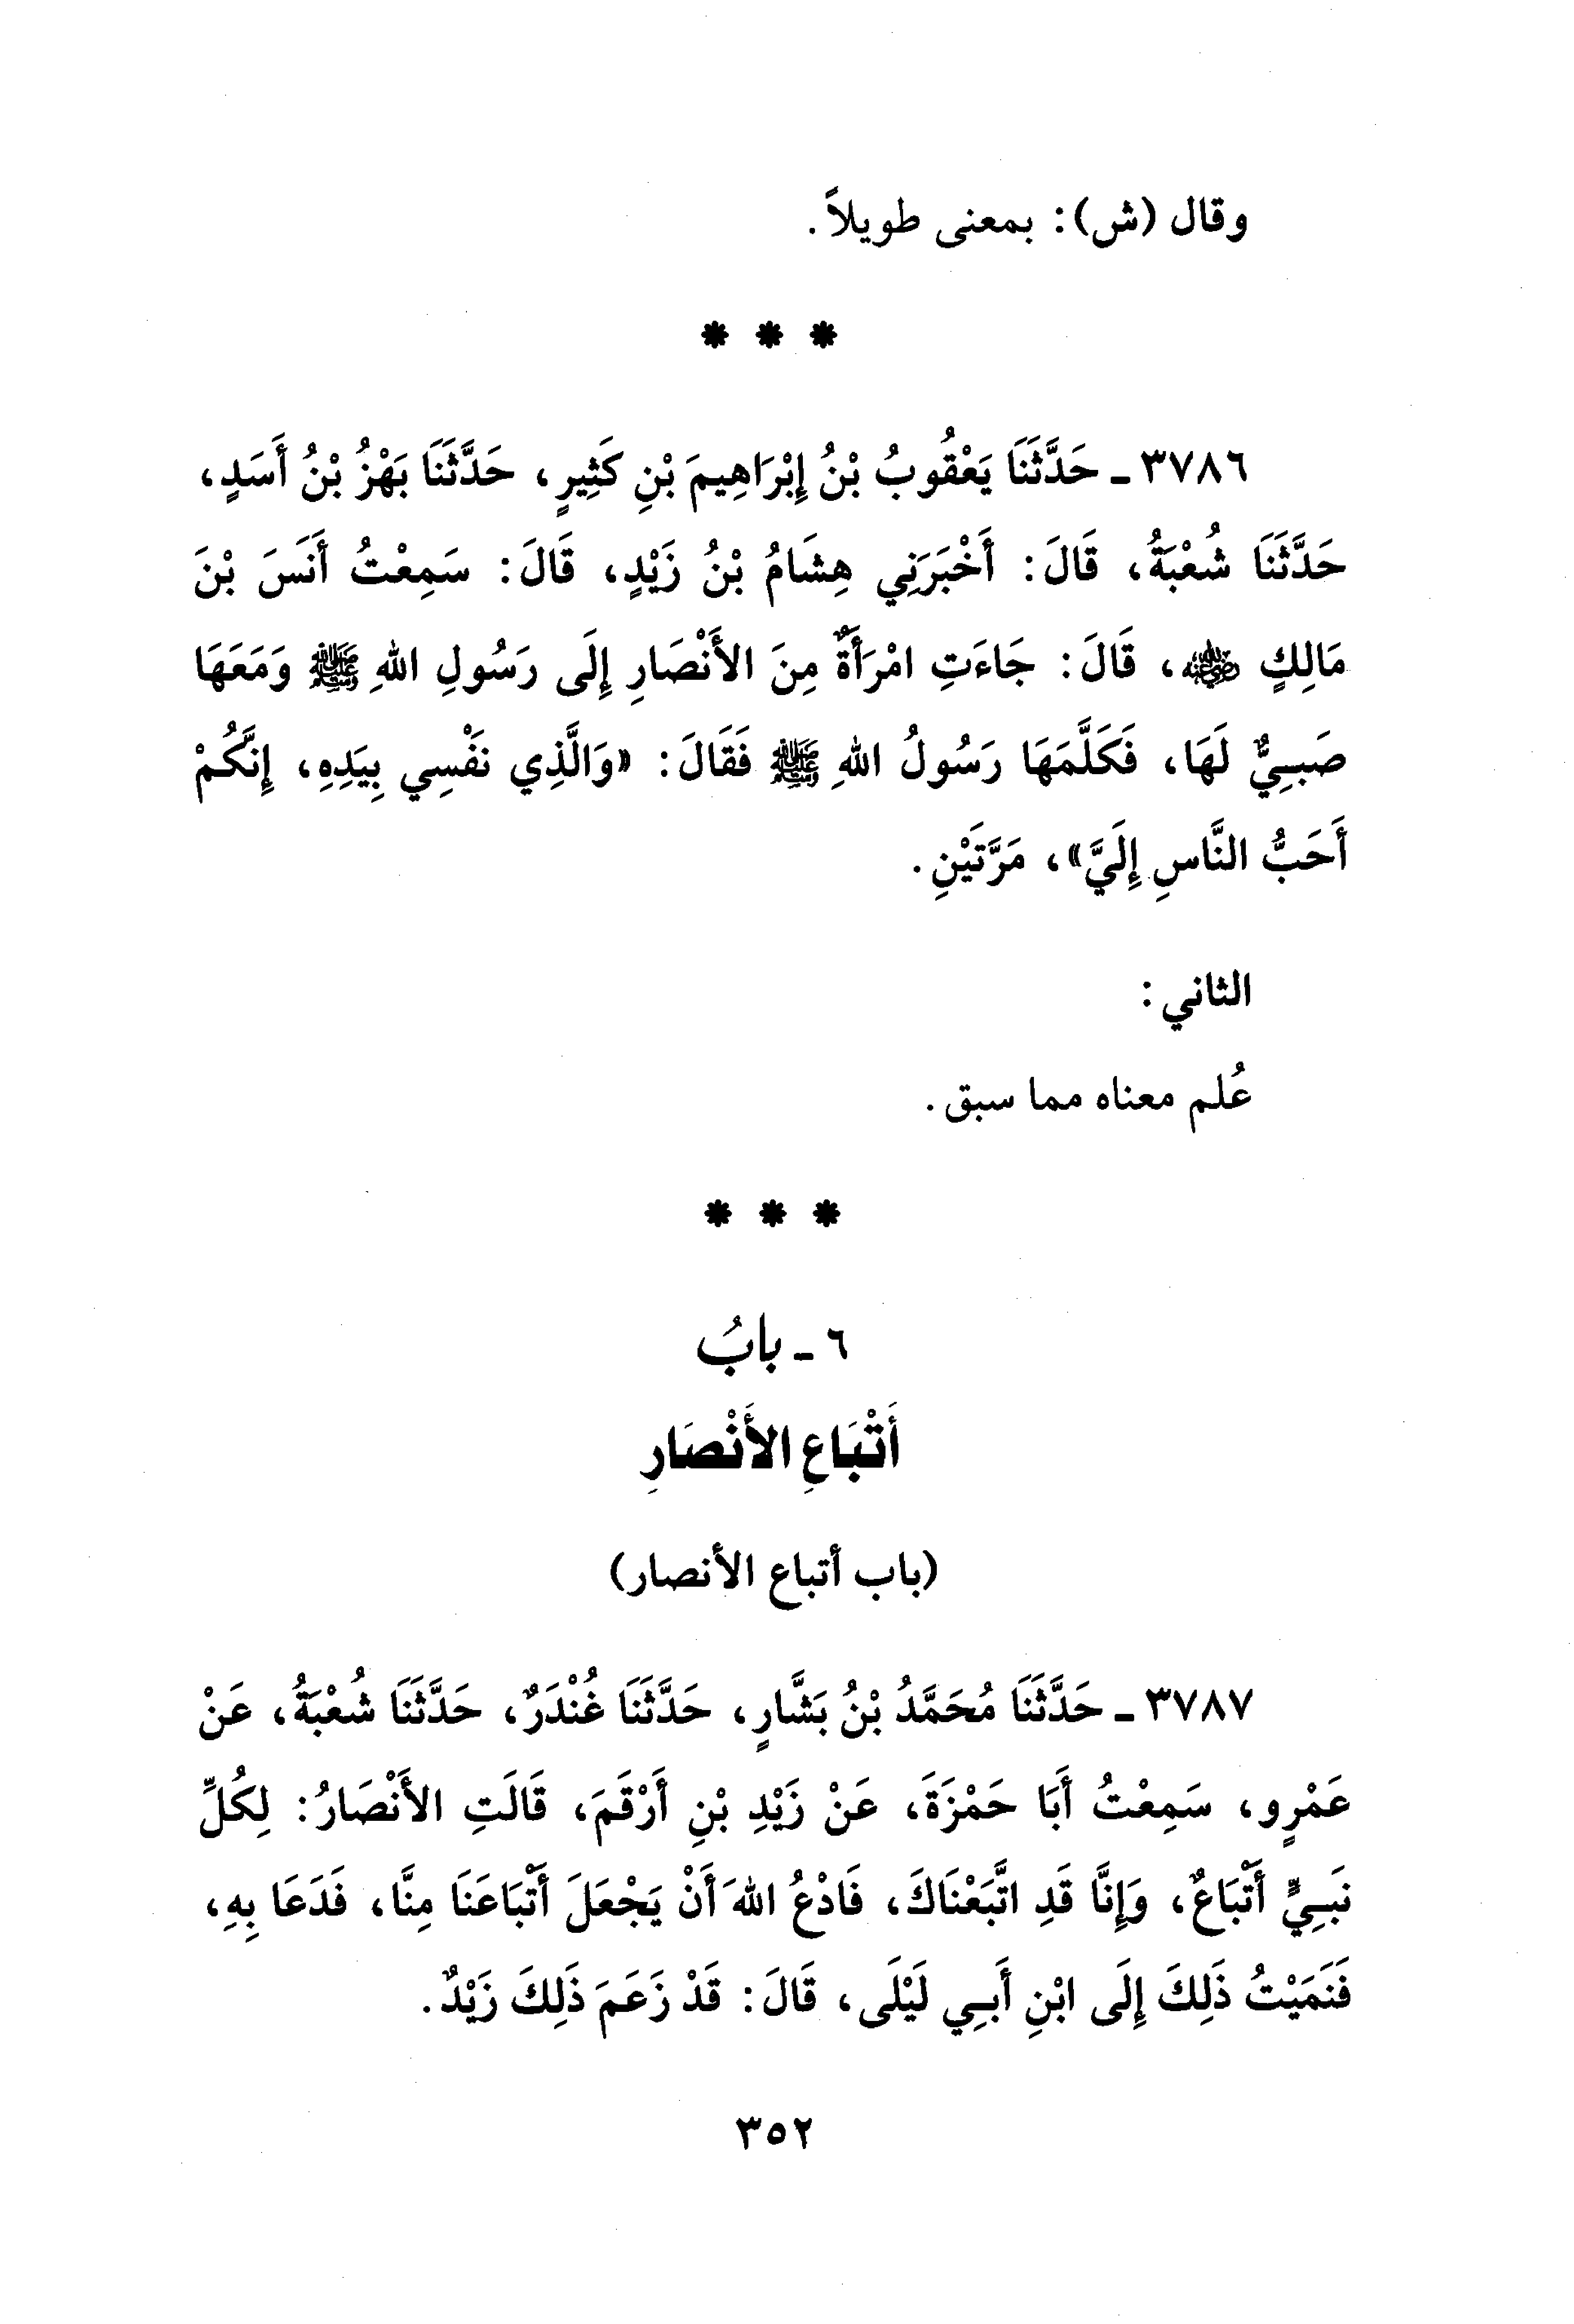 وقال (ش): بمعنى طويلاً.
* * *
٣٧٨٦ ـ حَدَّثَنَا يَعْقُوبُ بْنُ إِبْرَاهِيمَ بْنِ كَثِيرٍ، حَدَّثَنَا بَهْزُ بْنُ أَسَدٍ،
حَدَّثَنَا شُعْبَةُ، قَالَ: أَخْبَرَنِي هِشَامُ بْنُ زَيْدٍ، قَالَ: سَمِعْتُ أَنَسَ بْنَ
مَالِكٍ ﵁، قَالَ: جَاءَتِ امْرَأَةٌ مِنَ الأَنْصَارِ إِلَى رَسُولِ اللهِ ﷺ وَمَعَهَا
صَبِيٌّ لَهَا، فَكَلَّمَهَا رَسُولُ اللهِ ﷺ فَقَالَ: «وَالَّذِي نَفْسِي بِيَدِهِ، إِنَّكُمْ
أَحَبُّ النَّاسِ إِلَيَّ»، مَرَّتَيْنِ.
الثاني:
عُلم معناه مما سبق.
* * *
٦ ـ بابُ
أَتْبَاعِ الأَنْصَارِ
(باب أتباع الأنصار)
٣٧٨٧ ـ حَدَّثَنَا مُحَمَّدُ بْنُ بَشَّارٍ، حَدَّثَنَا غُنْدَرٌ، حَدَّثَنَا شُعْبَةُ، عَنْ
عَمْرٍو، سَمِعْتُ أَبَا حَمْزَةَ، عَنْ زَيْدِ بْنِ أَرْقَمَ، قَالَتِ الأَنْصَارُ: لِكُلِّ
نَبِيٍّ أَتْبَاعٌ، وَإِنَّا قَدِ اتَّبَعْنَاكَ، فَادْعُ اللهَ أَنْ يَجْعَلَ أَتْبَاعَنَا مِنَّا، فَدَعَا بِهِ،
فَنَمَيْتُ ذَلِكَ إِلَى ابْنِ أَبِي لَيْلَى، قَالَ: قَدْ زَعَمَ ذَلِكَ زَيْدٌ.
٣٥٢